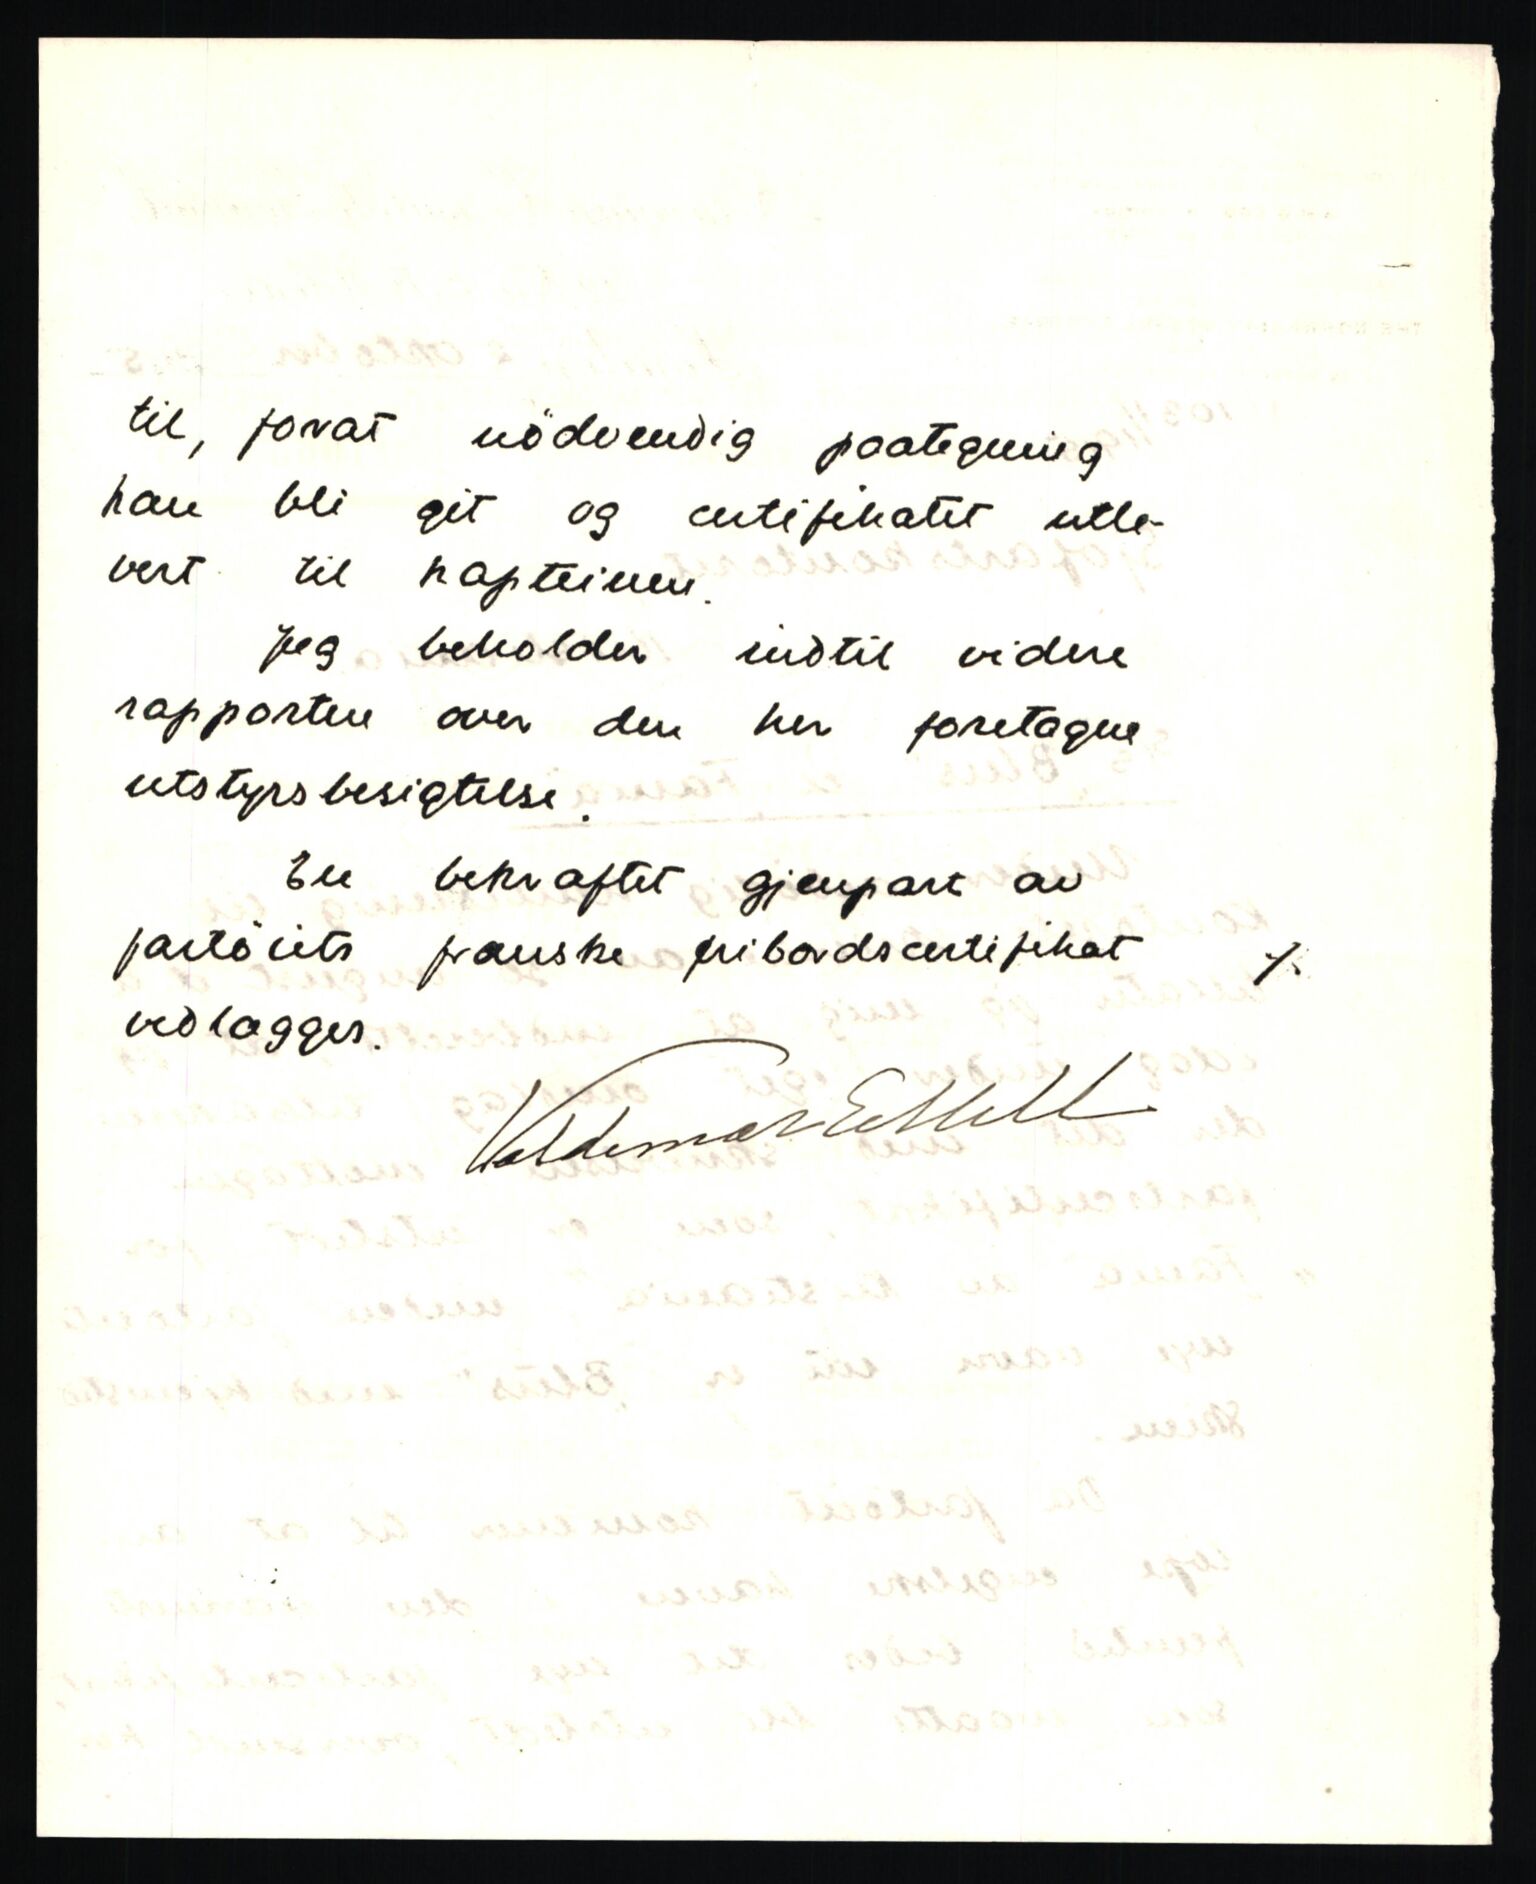 til, forat nödvendig paategning
kan bli git og certifikatet utle-
vert til kapteinen.
Jeg beholder indtil videre
rapporten over den her foretagne
utstyrsbesigtelse.
En bekræftet gjenpart av
fartöiets franske fribordscertifikat ./.
vedlægges.
Valdemar